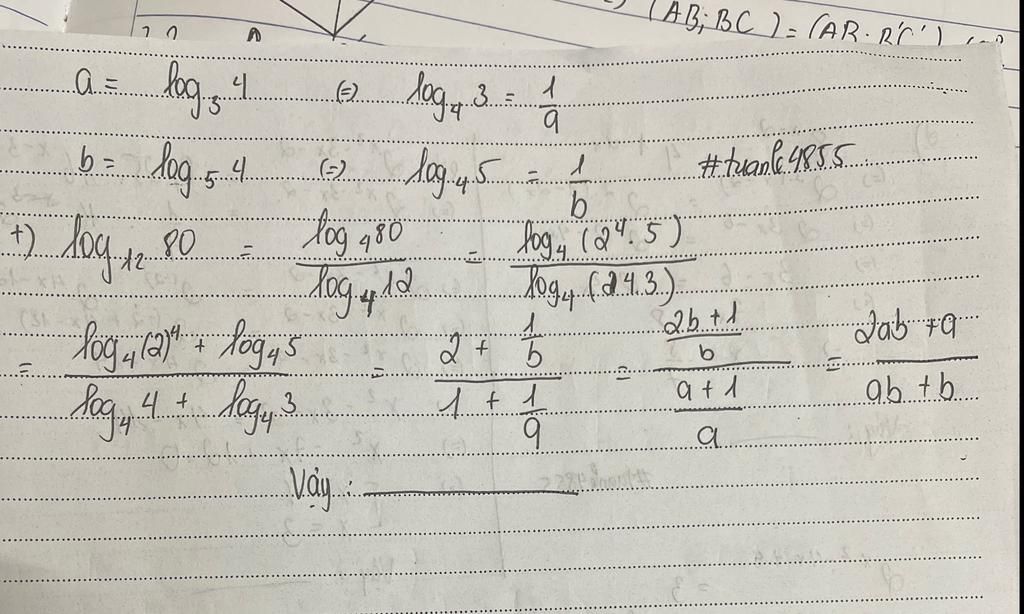 (AB; BC) = (AB. B'C')
a = log₃ 4 (=) log₄ 3 = 1/a
b = log₅ 4 (=) log₄ 5 = 1/b #tuank4855
+) log₁₂ 80 = log₄ 80 / log₄ 12 = log₄ (2⁴. 5) / log₄ (24.3)
= (log₄ (2)⁴ + log₄ 5) / (log₄ 4 + log₄ 3) = (2 + 1/b) / (1 + 1/a) = ((2b + 1)/b) / ((a + 1)/a) = (2ab + a) / (ab + b)
Vậy :